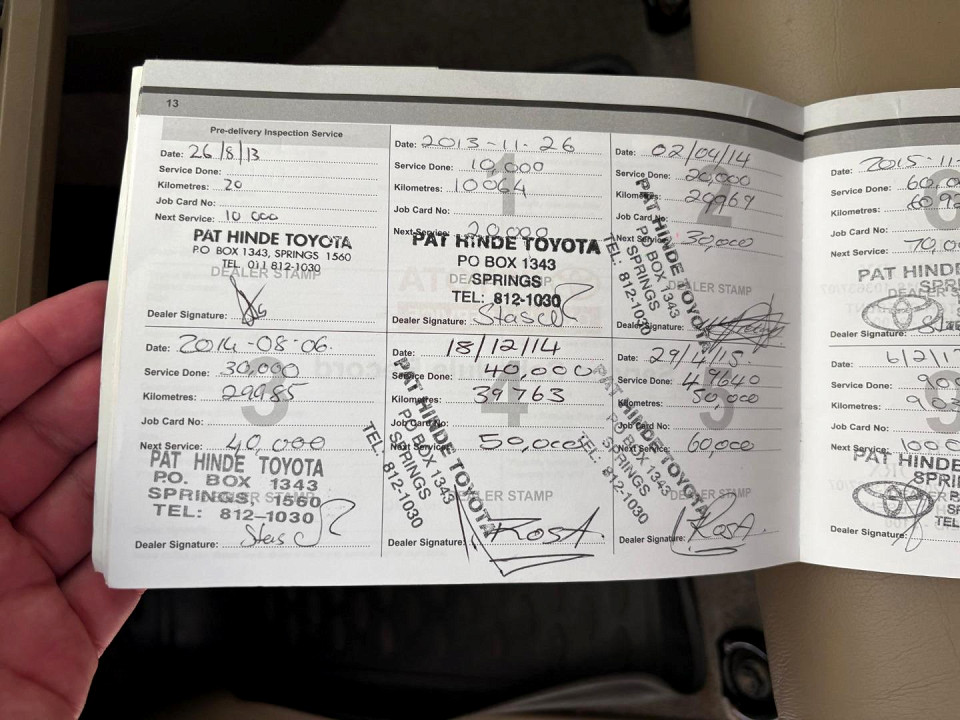 13
Pre-delivery Inspection Service
Date: 26/8/13
Service Done:
Kilometres: 20
Job Card No:
Next Service: 10 000
PAT HINDE TOYOTA
PO BOX 1343, SPRINGS 1560
TEL. 011 812-1030
DEALER STAMP
Dealer Signature:
1
Date: 2013-11-26
Service Done: 10,000
Kilometres: 10064
Job Card No:
Next Service: 20,000
PAT HINDE TOYOTA
PO BOX 1343
SPRINGS
TEL: 812-1030
DEALER STAMP
Dealer Signature:
2
Date: 02/04/14
Service Done: 20,000
Kilometres:
Job Card No:
Next Service: 30,000
PAT HINDE TOYOTA
PO BOX 1343
SPRINGS
TEL: 812-1030
DEALER STAMP
Dealer Signature:
3
Date: 2014-08-06
Service Done: 30,000
Kilometres: 29985
Job Card No:
Next Service: 40,000
PAT HINDE TOYOTA
P.O. BOX 1343
SPRINGS 1560
TEL: 812-1030
DEALER STAMP
Dealer Signature:
4
Date: 18/12/14
Service Done: 40,000
Kilometres: 39763
Job Card No:
Next Service: 50,000
PAT HINDE TOYOTA
PO BOX 1343
SPRINGS
TEL: 812-1030
DEALER STAMP
Dealer Signature: RosA
5
Date: 29/4/15
Service Done: 49640
Kilometres: 50,000
Job Card No:
Next Service: 60,000
PAT HINDE TOYOTA
PO BOX 1343
SPRINGS
TEL: 812-1030
DEALER STAMP
Dealer Signature: RosA
6
Date: 2015-11-
Service Done: 60,0
Kilometres:
Job Card No:
Next Service: 70,0
PAT HINDE
Dealer Signature:
9
Date: 6/2/1
Service Done: 900
Kilometres: 903
Job Card No:
Next Service: 100 0
PAT HINDE
Dealer Signature: